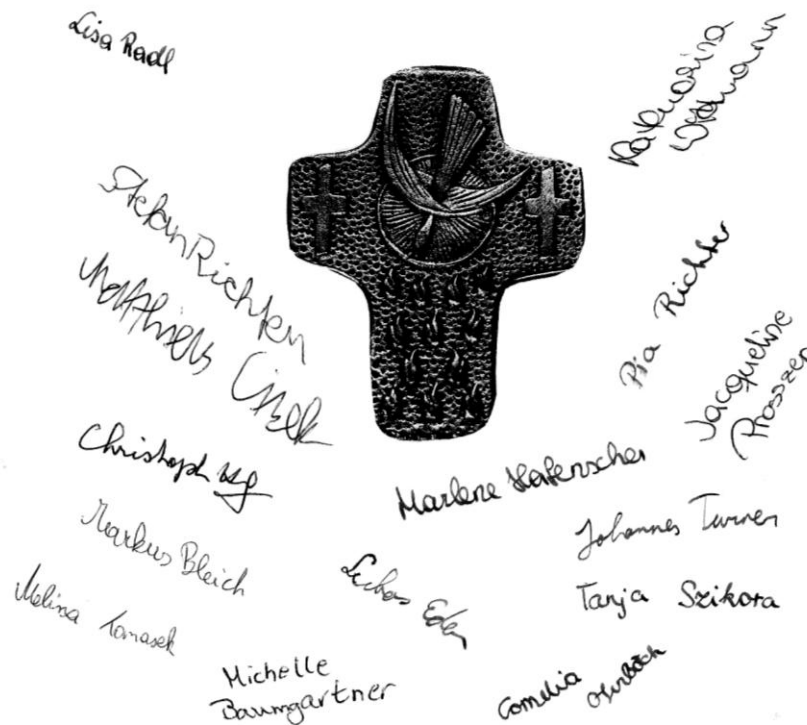 Lisa Radl
Katharina
Wittmann
Stefan Richter
Matthias Cizek
Pia Richter
Jacqueline
Prosszer
Christoph
Marlene Hafenscher
Markus Bleich
Johannes Turner
Lukas Eder
Melina Tomasek
Tanja Szikora
Michelle
Baumgartner
Cornelia